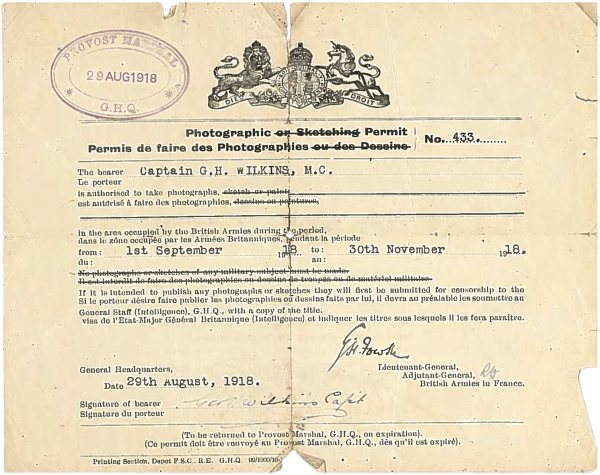 PROVOST MARSHAL
29 AUG 1918
G.H.Q.
DIEU ET MON DROIT
Photographic or Sketching Permit
Permis de faire des Photographies ou des Dessins
No. 433.
The bearer Captain G.H. WILKINS, M.C.
Le porteur
is authorised to take photographs, sketch or paint
est autorisé à faire des photographies, dessins ou peintures,
in the area occupied by the British Armies during the period,
dans le zône occupée par les Armées Britanniques, pendant la période
from: 1st September 1918 to: 30th November 1918.
du: au:
No photographs or sketches of any military subject must be made.
Il est interdit de faire des photographies ou dessins de troupes ou de matériel militaire.
If it is intended to publish any photographs or sketches they will first be submitted for censorship to the
Si le porteur désire faire publier les photographies ou dessins faits par lui, il devra au préalable les soumettre au
General Staff (Intelligence), G.H.Q., with a copy of the title.
visa de l'Etat-Major Général Britannique (Intelligence) et indiquer les titres sous lesquels il les fera paraître.
General Headquarters,
Date 29th August, 1918.
G.H. Fowke
Lieutenant-General,
Adjutant-General,
British Armies in France.
Signature of bearer Geo H Wilkins Capt
Signature du porteur
(To be returned to Provost Marshal, G.H.Q., on expiration).
(Ce permis doit être renvoyé au Provost Marshal, G.H.Q., dès qu'il est expiré).
Printing Section, Depot F.S.C., R.E. G.H.Q